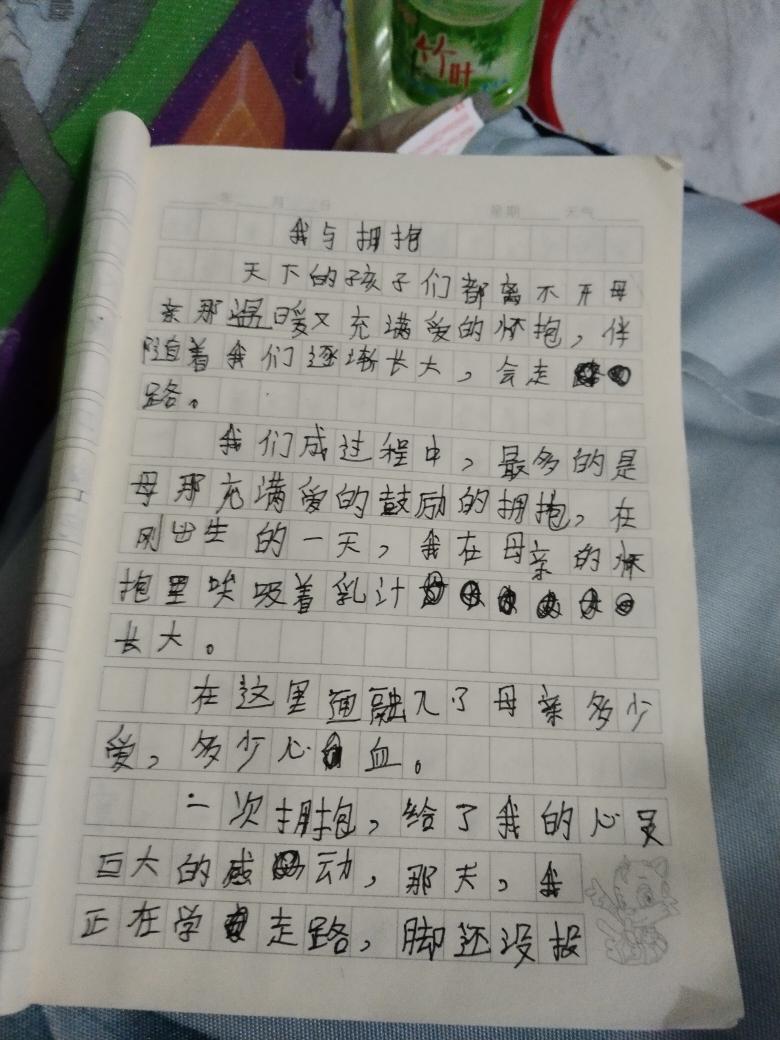 竹叶
年 月 日 星期 天气
我与拥抱
天下的孩子们都离不开母
亲那温暖又充满爱的怀抱，伴
随着我们逐渐长大，会走
路。
我们成过程中，最多的是
母那充满爱的鼓励的拥抱，在
刚出生的一天，我在母亲的怀
抱里唉吸着乳汁
长大。
在这里通融入了母亲多少
爱，多少心血。
一次拥抱，给了我的心灵
巨大的感动，那天，我
正在学走路，脚还没